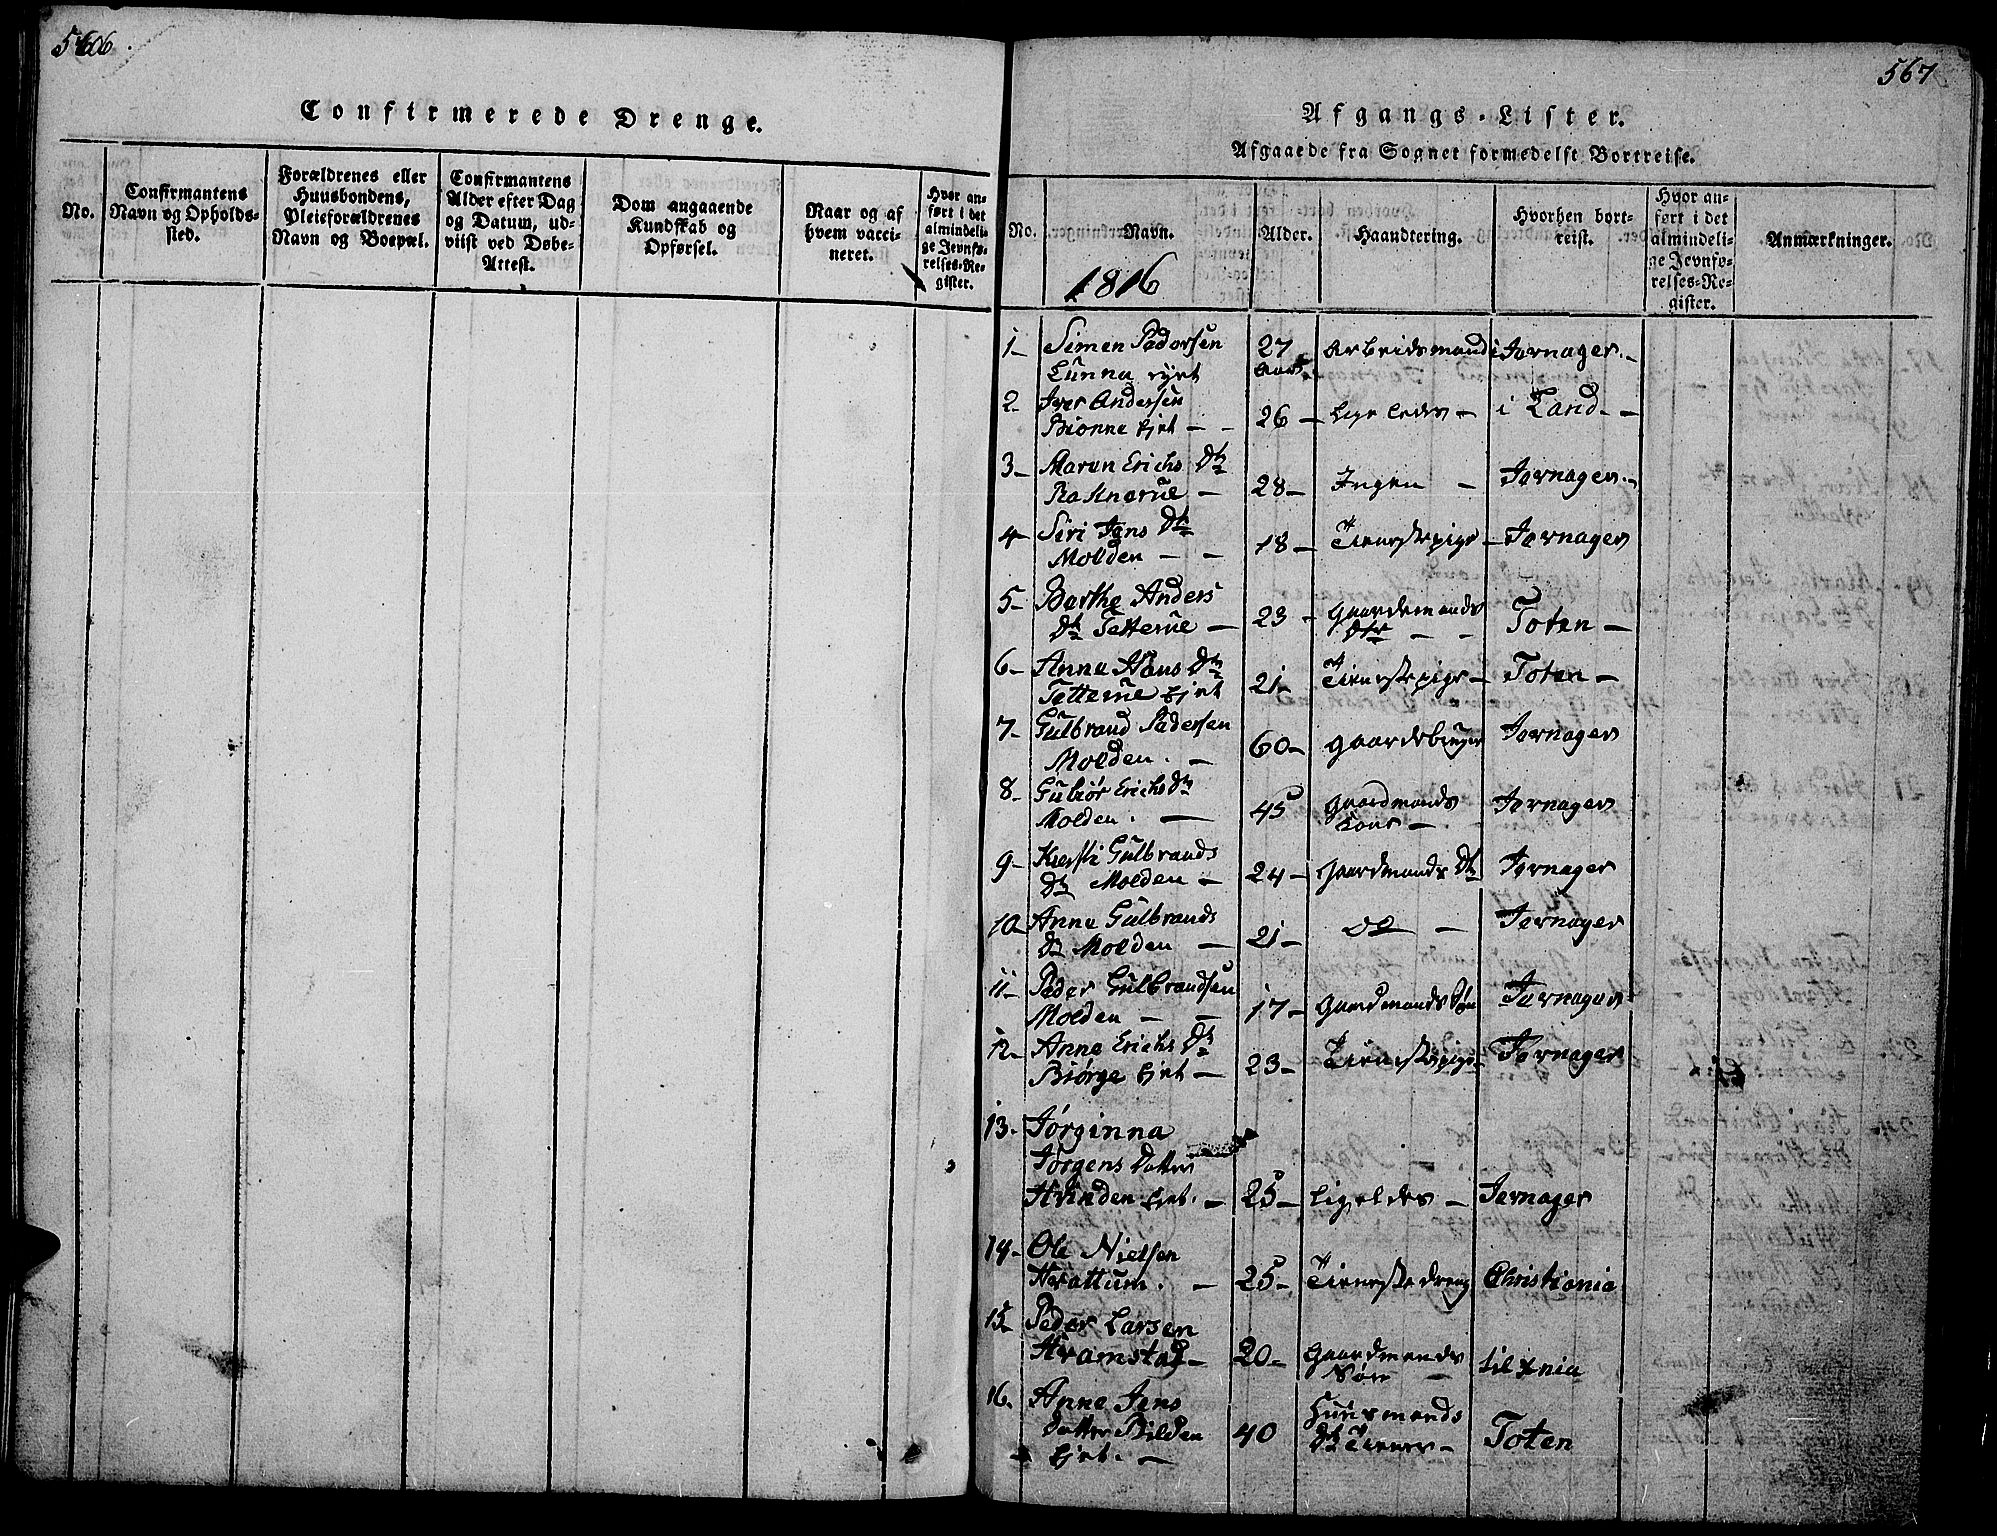 566.
Confirmerede Drenge.
No.
Confirmantens Navn og Opholds-sted.
Forældrenes eller Huusbondens, Pleieforældrenes Navn og Boepæl.
Confirmantens Alder efter Dag og Datum, ud-viist ved Døbe-Attest.
Dom angaaende Kundskab og Opførsel.
Naar og af hvem vacci-neret.
Hvor an-ført i det almindeli-ge Jevnfø-relses-Re-gister.
567
Afgangs-Lister.
Afgaaede fra Sognet formedelst Bortreise.
No.
Navn.
Alder.
Haandtering.
Hvorhen bort-reist.
Hvor an-ført i det almindeli-ge Jevnfø-relses-Re-gister.
Anmærkninger.
1816
1- Simen Pedersen 27 Arbeidsmand i Jevnager.-
Lunna eyet Aar
2- Iver Andersen
Bionne Ejet - - 26 - Ligeledes - i Land. -
3- Maren Erichs Dtr
- 28 - Ingen - Jevnager.-
4- Siri Jens Dtr
Molden - - 18 - Tienestepige - Jevnager
5- Berthe Anders 23 - Gaardmands
Dtr Tetterue - Dtr - - Toten -
6- Anne Hans Dtr
Tetterue Ejet 21 - Tienestepige - Toten -
7- Gulbrand Pedersen
Molden. - 60 - Gaardebruger Jevnager
8- Gubiør Erichs Dtr
Molden. - 45 Gaardmands Kone - Jevnager
9- Kiersti Gulbrands
Dtr Molden - 24 - Gaardmands Dtr Jevnager
10- Anne Gulbrands
Dtr Molden - 21 - do - Jevnager
11- Peder Gulbrandsen
Molden - - 17 - Gaardmands Søn Jevnager
12- Anne Erichs Dtr
Biørge Ejet - 23 - Tienestepige - Jevnager
13- Jørginna
Jørgens Datter
Hvinden Ejet. - 25 - Ligeledes - Jevnager
14- Ole Nielsen
Hvattum. - 25 - Tienestedreng Christiania
15- Peder Larsen
Framstad - 20 - Gaardmands Søn - til Xnia
16. Anne Jens
Datter Bilden 40 Huusmands Dtr Tiener - Toten
Ejet. -